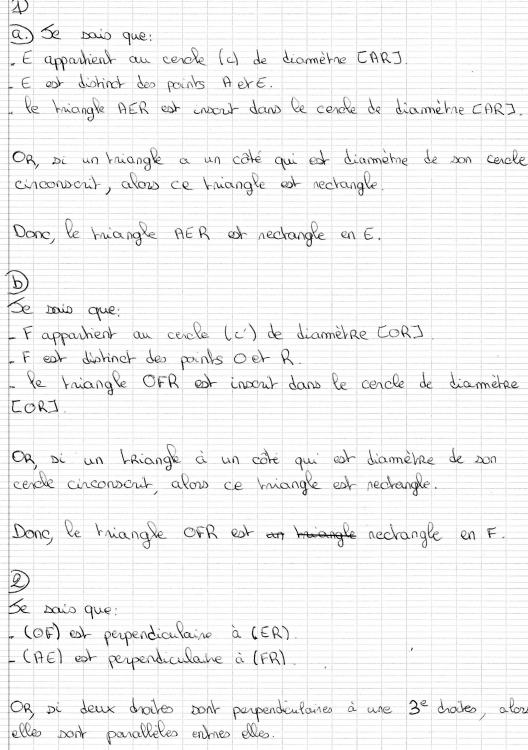 1)
a.) Je sais que:
- E appartient au cercle (c) de diamètre [AR].
- E est distinct des points A et E.
- le triangle AER est inscrit dans le cercle de diammètre [AR].
OR, si un triangle a un côté qui est diammètre de son cercle
circonscrit, alors ce triangle est rectangle.
Donc, le triangle AER est rectangle en E.
b)
Je sais que:
- F appartient au cercle (c') de diammètre [OR].
- F est distinct des points O et R.
- le triangle OFR est inscrit dans le cercle de diammètre
[OR].
OR, si un triangle à un côté qui est diammètre de son
cercle circonscrit, alors ce triangle est rectangle.
Donc, le triangle OFR est un triangle rectangle en F.
2)
Je sais que:
- (OF) est perpendiculaire à (ER).
- (AE) est perpendiculaire à (FR).
OR, si deux droites sont perpendiculaires à une 3e droites, alors
elles sont parallèles entres elles.